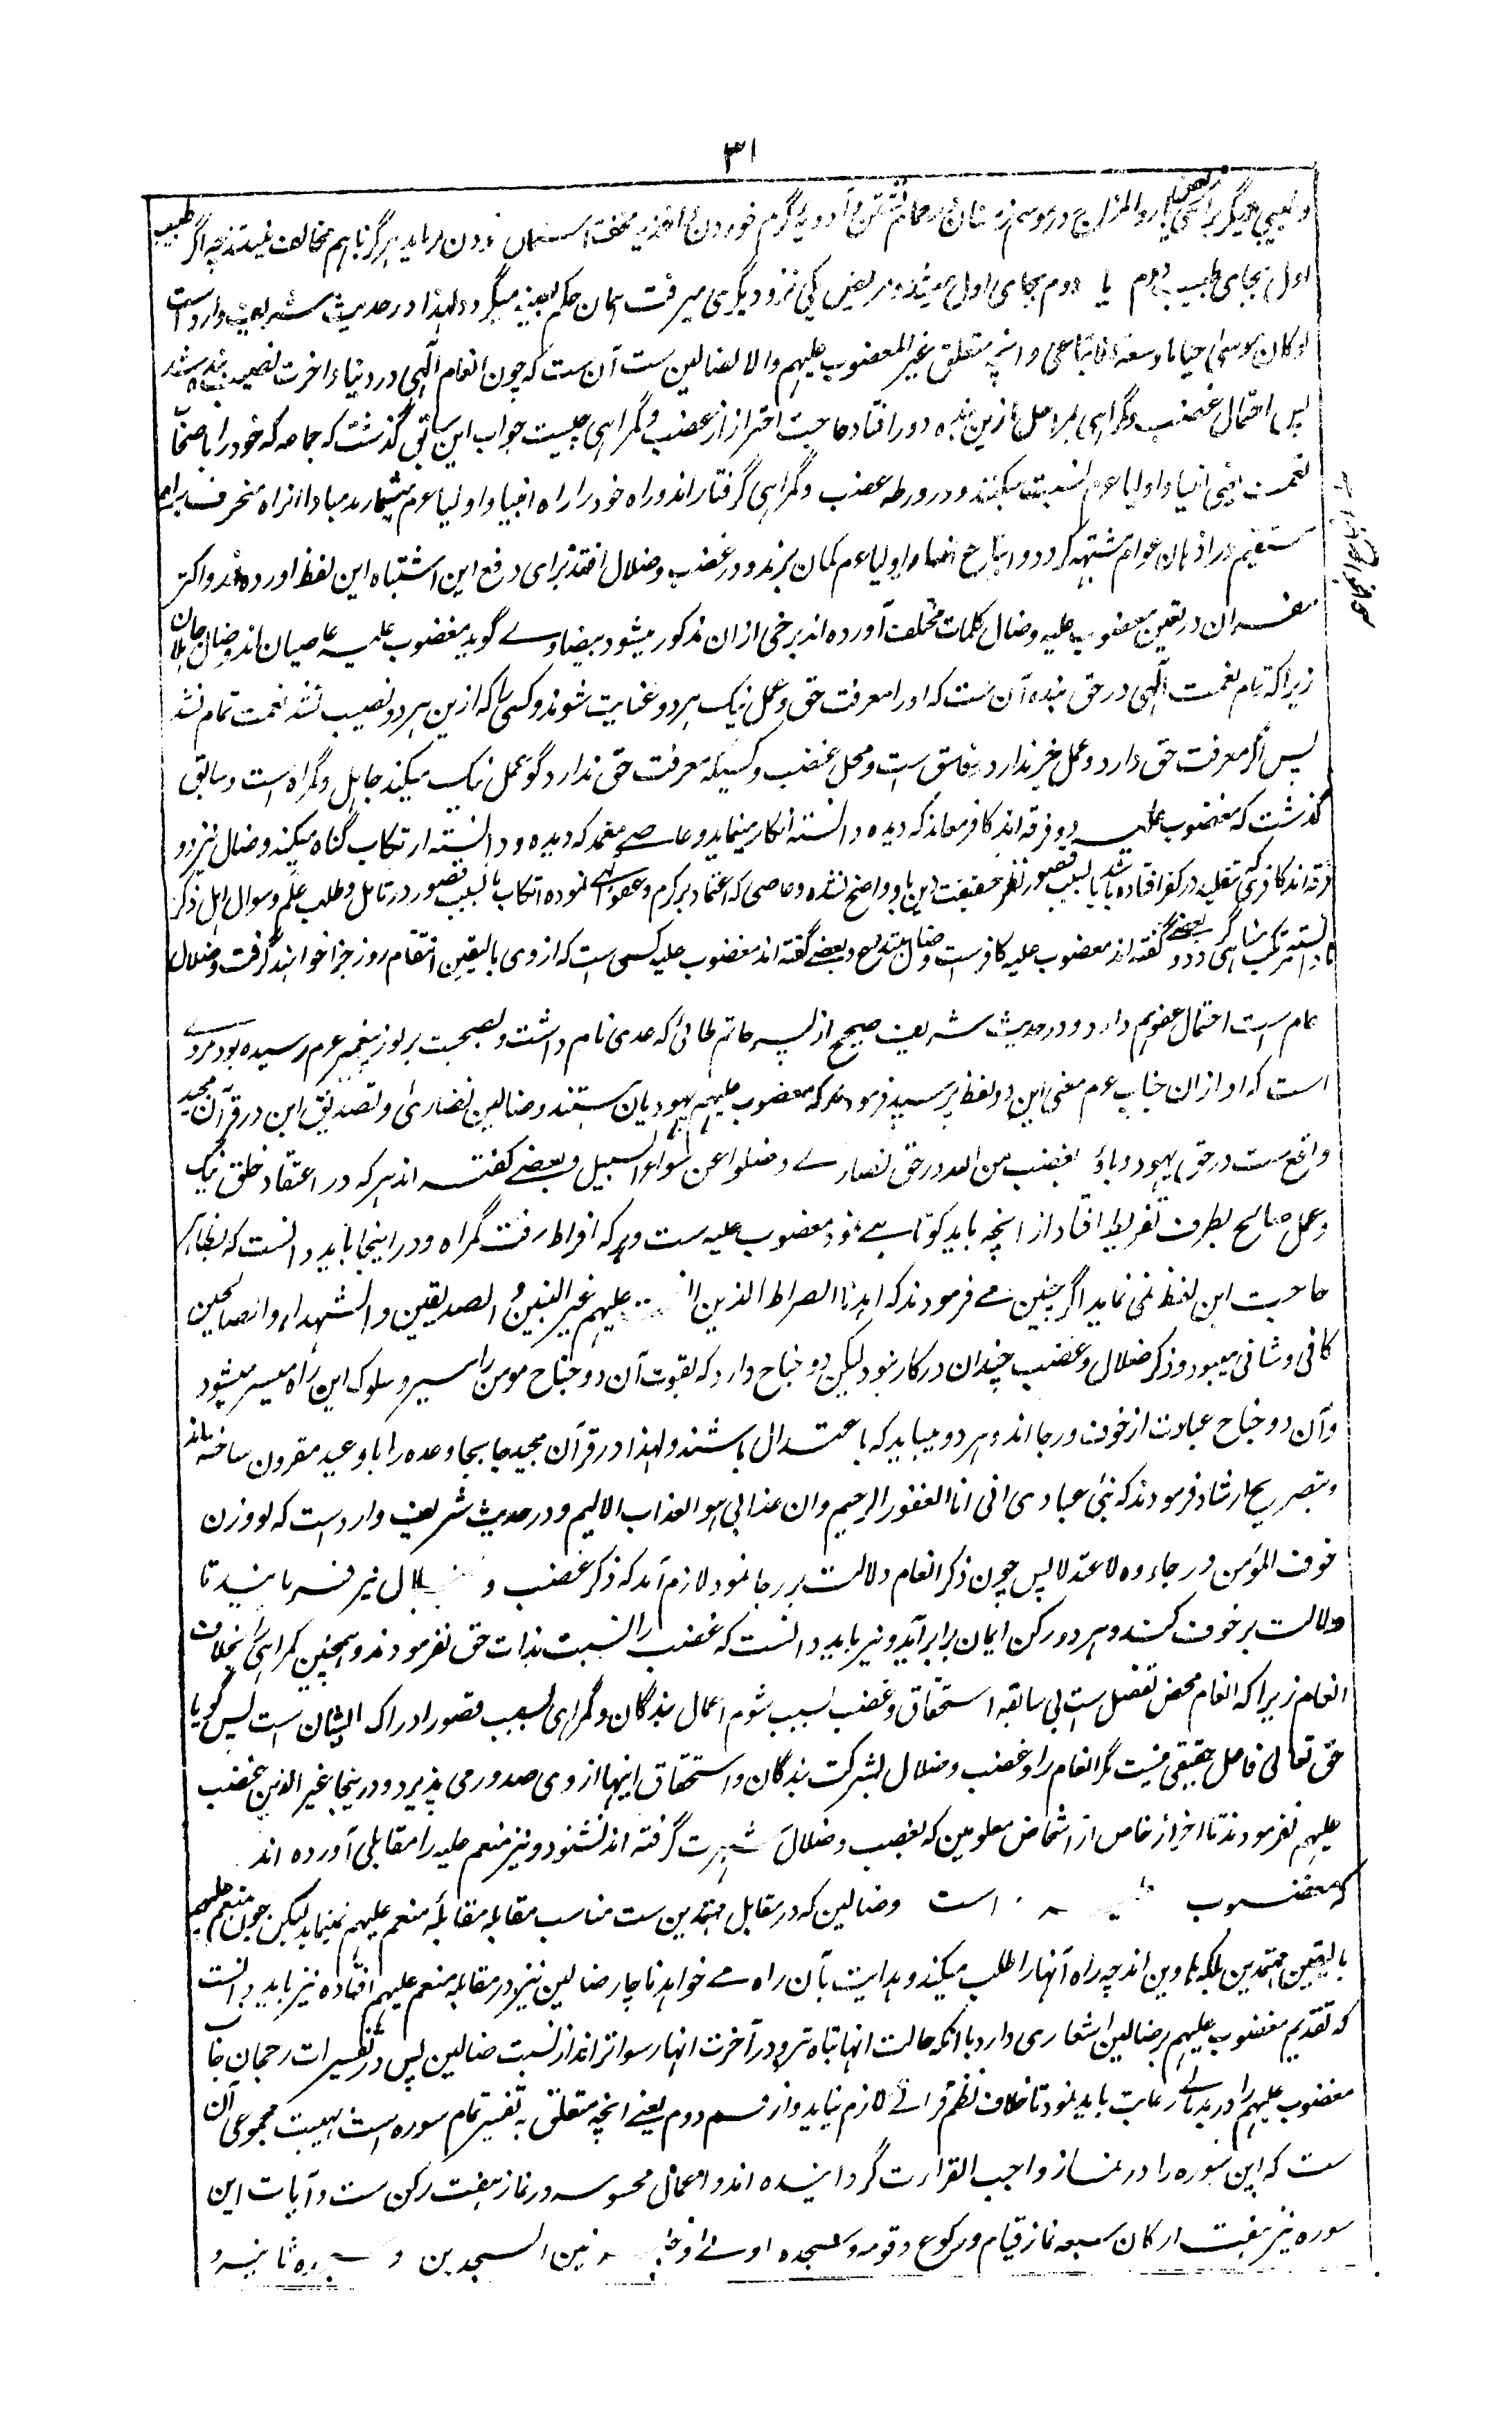 ٣١
و طبیبی دیگر برای مریض بارد المزاج در موسم زمستان در حمام نشستن و ادویهٔ گرم خوردن و اغذیه استعمال نمودن فرماید هرگز باهم مخالف نیستند چه اگر طبیب
اول بجای طبیب دوم یا دوم بجای اول میشد و مریض یکی نزد دیگری میرفت همان حکم بعینه میکرد و لهذا در حدیث شریف وارد است
لو کان موسی حیا ما وسعه الا اتباعی و انچه متعلق غیر المغضوب علیهم و لا الضالین ست آن ست که چون انعام الهی در دنیا و آخرت نصیب بنده شد
پس احتمال غضب و گمراهی بمراحل ازین بنده دور افتاد حاجت احتراز از غضب و گمراهی چیست جواب این سابق گذشت که جماعه که خود را باصحاب
نعمت یعنی انبیا و اولیا عوم نسبت میکنند و در ورطه غضب و گمراهی گرفتار اند و راه خود را راه انبیا و اولیا عوم میشمارند مبادا آنراه منحرف براه
مستقیم در اذهان عوام مشتبه گردد و اتباع انبیا و اولیا عوم گمان برند و در غضب و ضلال افتند برای دفع این اشتباه این لفظ آورده اند و اکثر
مفسران در تعین مغضوب علیه و ضال کلمات مختلف آورده اند برخی ازان مذکور میشود بیضاوی گوید مغضوب علیه عاصیان اند و ضال جاهلان
زیرا که تمام نعمت الهی در حق بنده آن ست که او را معرفت حق و عمل نیک هر دو عنایت شوند و کسی را که ازین هر دو نصیب نشد نعمت تمام نشد
پس اگر معرفت حق دارد و عمل خیر ندارد فاسق ست و محل غضب و کسیکه معرفت حق ندارد گو عمل نیک میکند جاهل و گمراه است و سابق
گذشت که مغضوب علیه دو فرقه اند کافر معاند که دیده و دانسته انکار مینماید و عاصی متعمد که دیده و دانسته ارتکاب گناه میکند و ضال نیز دو
فرقه اند کافری که بتقلید در کفر افتاده باشد یا بسبب قصور نظر حقیقت دین باو واضح نشده و عاصی که اعتماد بر کرم و عفو الهی نموده ارتکاب یا بسبب قصور در تامل و طلب علم و سوال اهل ذکر
نادانسته مرتکب مناهی گردد و بعضی گفته اند مغضوب علیه کافر است و ضال مبتدع و بعضی گفته اند مغضوب علیه کسی است که از وی بالیقین انتقام روز جزا خواهند گرفت و ضلال
عام است احتمال عفو هم دارد و در حدیث شریف صحیح از پسر حاتم طائی که عدی نام داشت و بصحبت پرنور پیغمبر عوم رسیده بود مروی
است که او ازان جناب عوم معنی این دو لفظ پرسید فرمودند که مغضوب علیهم یهودیان هستند و ضالین نصاری و تصدیق این در قرآن مجید
واقع ست در حق یهود و باؤ بغضب من الله و در حق نصاری و ضلوا عن سواء السبیل و بعضی گفته اند هر که در اعتقاد و خلق نیک
و عمل صالح بطرف تفریط افتاد از انچه باید کوتاهی نمود مغضوب علیه ست و هر که افراط رفت گمراه و در اینجا باید دانست که بظاهر
حاجت این لفظ نمی نماید اگر چنین می فرمودند که اهدنا الصراط الذین انعمت علیهم غیر النبین و الصدیقین و الشهداء و الصالحین
کافی و شافی میبود و ذکر ضلال و غضب چندان درکار نبود لیکن دو جناح دارد که بقوت آن دو جناح مومن را سیر و سلوک این راه میسر میشود
و آن دو جناح عبارت از خوف و رجا اند و هر دو میباید که باعتدال باشند و لهذا در قرآن مجید جابجا وعده را با وعید مقرون ساخته اند
و بتصریح ارشاد فرمودند که نبئ عبادی انی انا الغفور الرحیم و ان عذابی هو العذاب الالیم و در حدیث شریف وارد است که لو وزن
خوف المؤمن و رجاءه لاعتدلا پس چون ذکر انعام دلالت بر رجا نمود لازم آمد که ذکر غضب و ضلال نیز فرمایند تا
دلالت بر خوف کند و هر دو رکن ایمان برابر آید و نیز باید دانست که غضب را نسبت بذات حق نفرمودند و همچنین گمراهی را بخلاف
انعام زیرا که انعام محض تفضل ست بی سابقه استحقاق و غضب بسبب شوم اعمال بندگان و گمراهی بسبب قصور ادراک ایشان است پس گویا
حق تعالی فاعل حقیقی نیست مگر انعام را و غضب و ضلال بشرکت بندگان و استحقاق اینها از وی صدور می پذیرد و در ینجا غیر الذین غضب
علیهم نفرمودند تا اخراز خاص از اشخاص معلومین که بغضب و ضلال شهرت گرفته اند نشود و نیز منعم علیه را مقابلی آورده اند
که مغضوب علیه است و ضالین که در مقابل مهتدین ست مناسب مقابله منعم علیهم نمینماید لیکن چون منعم علیهم
بالیقین مهتدین بلکه هادین اند چه راه آنها را طلب میکند و هدایت بآن راه می خواهد ناچار ضالین نیز در مقابله منعم علیهم افتاده نیز باید دانست
که تقدیم مغضوب علیهم بر ضالین اشعاری دارد با انکه حالت انها تباه تر و در آخرت انها رسواتر اند از نسبت ضالین پس در تفسیرات رجحان جانب
مغضوب علیهم را در بدتری رعایت باید نمود تا خلاف نظم قرانی لازم نیاید و از قسم دوم یعنی انچه متعلق به تفسیر تمام سوره است بهیئت مجموعی آن
ست که این سوره را در نماز واجب القرات گردانیده اند و اعمال محسوسه در نماز هفت رکن ست و آیات این
سوره نیز هفت ارکان سبعه نماز قیام و رکوع و قومه و سجده اولی و جلسه بین السجدین و سجده ثانیه و